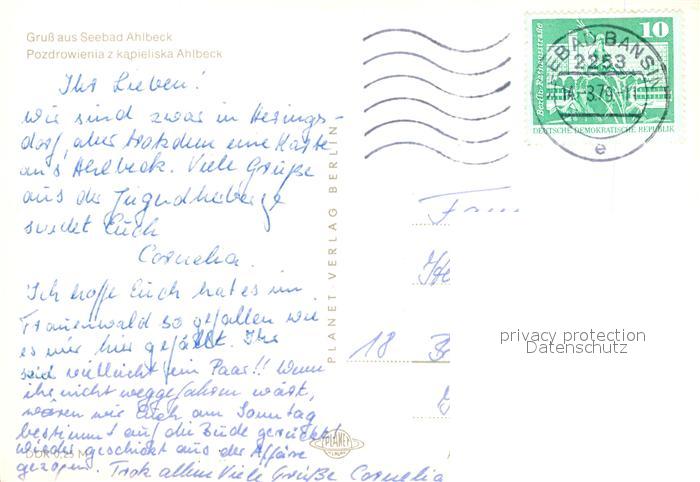 Gruß aus Seebad Ahlbeck
Pozdrowienia z kąpieliska Ahlbeck
Ihr Lieben!
wir sind zwar in Herings-
dorf, aber trotzdem eine Karte
aus Ahlbeck. Viele Grüße
aus der Jugendherberge
sendet Euch
Cornelia.
Ich hoffe Euch hat es im
Frauenwald so gefallen wie
es mir hier gefällt. Ihr
seid vielleicht ein Paar!! Wenn
ihr nicht weggefahren wärt,
wären wir Euch am Sonntag
bestimmt auf die Bude gerückt
wieder geschickt aus der Affäre
gezogen. Trotz allem Viele Grüße Cornelia
DDR 0,25 M
PLANET-VERLAG BERLIN
PLANET
SEEBAD BANSIN
2253
e
10
Berlin-Rathausstraße
DEUTSCHE DEMOKRATISCHE REPUBLIK
18
privacy protection
Datenschutz